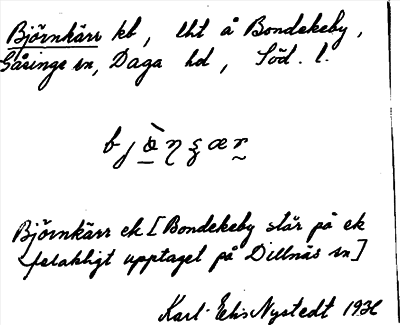 Björnkärr kb, lht å Bondekeby,
Gåsinge sn, Daga hd, Söd. l.
Björnkärr ek [Bondekeby står på ek
felaktigt upptaget på Dillnäs sn]
Karl-Elis Nystedt 1936